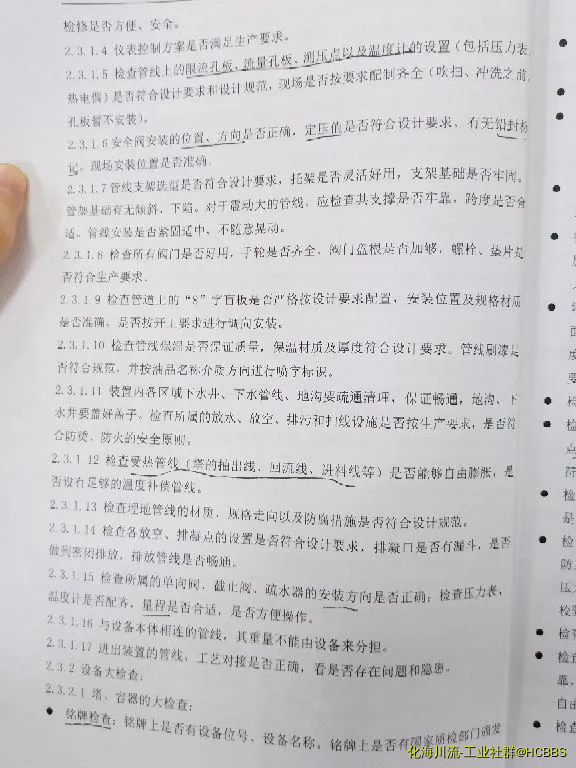 检修是否方便、安全。
2.3.1.4 仪表控制方案是否满足生产要求。
2.3.1.5 检查管线上的限流孔板、流量孔板、测压点以及温度计的设置（包括压力表
热电偶）是否符合设计要求和设计规范，现场是否按要求配制齐全（吹扫、冲洗之前
孔板暂不安装）。
2.3.1.6 安全阀安装的位置、方向是否正确，定压值是否符合设计要求，有无铅封标
记，现场安装位置是否准确。
2.3.1.7 管线支架选型是否符合设计要求，托架是否灵活好用，支架基础是否牢固。
管架基础有无倾斜、下陷。对于震动大的管线，应检查其支撑是否牢靠，跨度是否合
适。管线安装是否紧固适中，不随意晃动。
2.3.1.8 检查所有阀门是否好用，手轮是否齐全，阀门盘根是否加够，螺栓、垫片是
否符合生产要求.
2.3.1.9 检查管道上的“8”字盲板是否严格按设计要求配置，安装位置及规格材质
是否准确，是否按开工要求进行调向安装。
2.3.1.10 检查管线保温是否保证质量，保温材质及厚度符合设计要求。管线刷漆是
否符合规范，并按油品名称介质方向进行喷字标识。
2.3.1.11 装置内各区域下水井、下水管线、地沟要疏通清理，保证畅通，地沟、下
水井要盖好盖子。检查所属的放水、放空、排污和扫线设施是否按生产要求，是否符
合防烫、防火的安全原则。
2.3.1 12 检查受热管线（塔的抽出线、回流线、进料线等）是否能够自由膨胀，是
否设有足够的温度补偿管线。
2.3.1.13 检查埋地管线的材质、规格走向以及防腐措施是否符合设计规范。
2.3.1.14 检查各放空、排凝点的设置是否符合设计要求，排凝口是否有漏斗，是否
做到密闭排放，排放管线是否畅通。
2.3.1.15 检查所属的单向阀、截止阀、疏水器的安装方向是否正确；检查压力表、
温度计是否配齐，量程是否合适，是否方便操作。
2.3.1.16 与设备本体相连的管线，其重量不能由设备来分担。
2.3.1.17 进出装置的管线，工艺对接是否正确，看是否存在问题和隐患。
2.3.2 设备大检查：
2.3.2.1 塔、容器的大检查：
● 铭牌检查：铭牌上是否有设备位号、设备名称。铭牌上是否有国家质检部门颁发
化海川流-工业社群@HCBBS